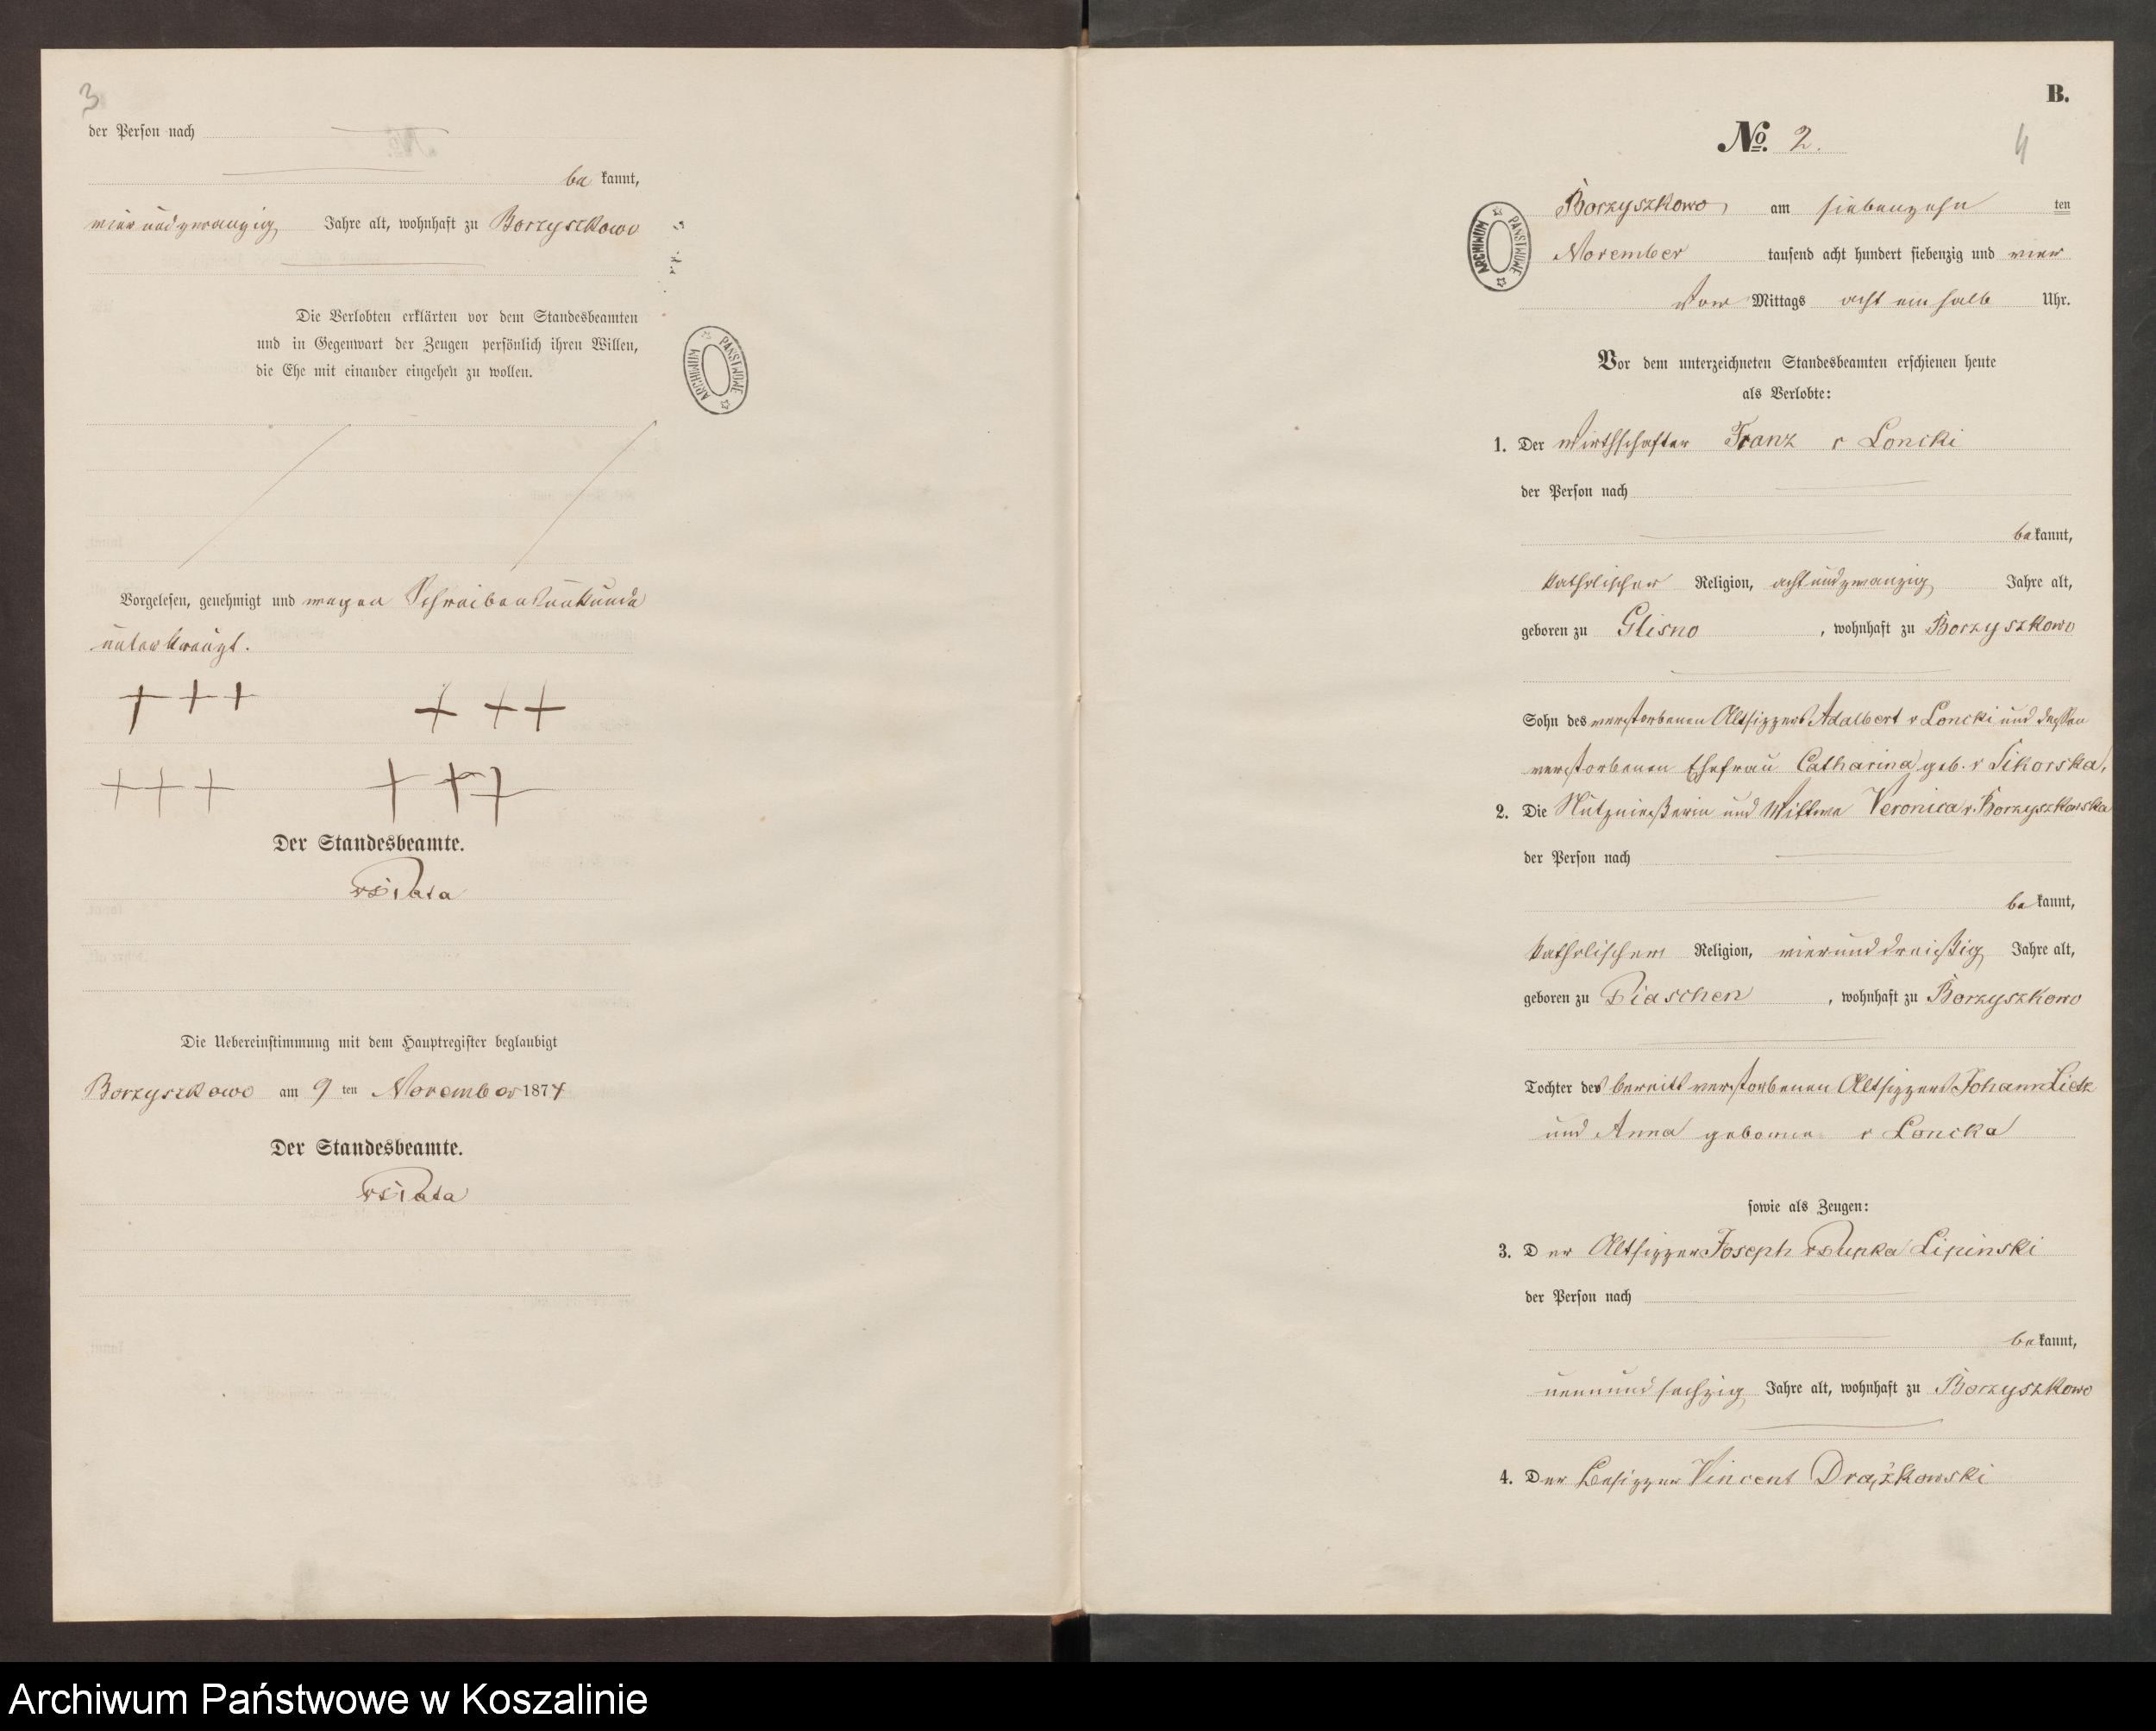 3
der Person nach
be kannt,
vier und zwanzig Jahre alt, wohnhaft zu Borzyszkowo
Die Verlobten erklärten vor dem Standesbeamten
und in Gegenwart der Zeugen persönlich ihren Willen,
die Ehe mit einander eingehen zu wollen.
ARCHIWUM PAŃSTWOWE
Vorgelesen, genehmigt und wegen Schreibensunkunde
unterkreuzt.
+ + + + + +
+ + + + + +
Der Standesbeamte.
Die Uebereinstimmung mit dem Hauptregister beglaubigt
Borzyszkowo am 9 ten November 1874
Der Standesbeamte.
B.
No. 2.
4
ARCHIWUM PAŃSTWOWE
Borzyszkowo, am siebenzehn ten
November tausend acht hundert siebenzig und vier
Vor Mittags acht ein halb Uhr.
Vor dem unterzeichneten Standesbeamten erschienen heute
als Verlobte:
1. Der Wirthschafter Franz v Loncki
der Person nach
be kannt,
katholischer Religion, acht und zwanzig Jahre alt,
geboren zu Glisno, wohnhaft zu Borzyszkowo
Sohn des verstorbenen Altsitzers Adalbert v Loncki und dessen
verstorbenen Ehefrau Catharina geb. v Sikorska,
2. Die Nutznießerin und Wittwe Veronica v. Borzyszkowska
der Person nach
be kannt,
katholischer Religion, vier und dreißig Jahre alt,
geboren zu Piaschen, wohnhaft zu Borzyszkowo
Tochter des bereits verstorbenen Altsitzers Johann Lietz
und Anna geborene v Loncka
sowie als Zeugen:
3. Der Altsitzer Joseph Lipinski
der Person nach
be kannt,
neun und sechzig Jahre alt, wohnhaft zu Borzyszkowo
4. Der Besitzer Vincent Drążkowski
Archiwum Państwowe w Koszalinie